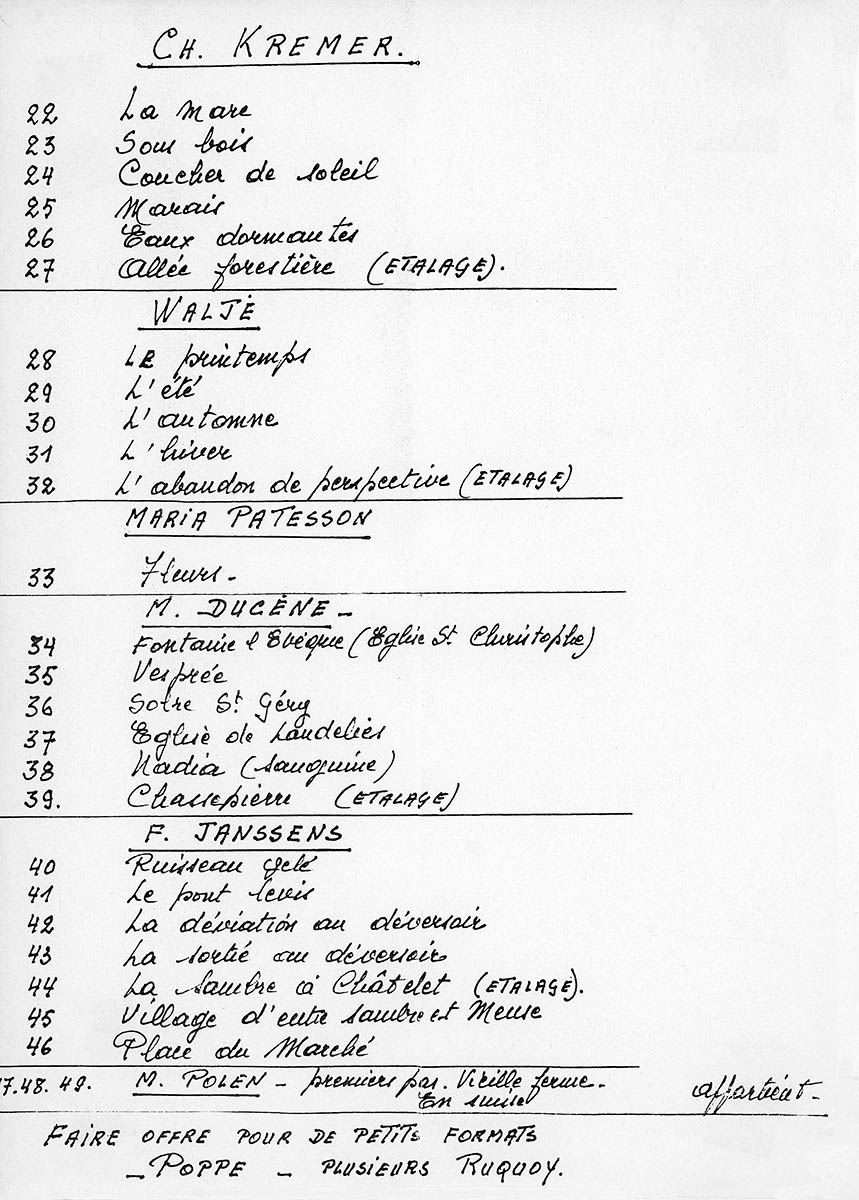 CH. KREMER.
22 La mare
23 Sous bois
24 Coucher de soleil
25 Marais
26 Eaux dormantes
27 Allée forestière (ETALAGE).
WALJÈ
28 LE printemps
29 L'été
30 L'automne
31 L'hiver
32 L'abandon de perspective (ETALAGE)
MARIA PATESSON
33 Fleurs -
M. DUCÈNE -
34 Fontaine l Evèque (Eglise St. Christophe)
35 Vesprée
36 Solre St Géry
37 Eglise de Landelies
38 Nadia (sanguine)
39. Chassepierre (ETALAGE)
F. JANSSENS
40 Ruisseau gelé
41 Le pont levis
42 La déviation au déversoir
43 La sortie au déversoir
44 La Sambre à Châtelet (ETALAGE).
45 Village d'entre Sambre et Meuse
46 Place du Marché
7.48.49. M. POLEN - premiers pas. Vieille ferme -
En suisse
appartient -
FAIRE OFFRE POUR DE PETITS FORMATS
- POPPE - PLUSIEURS RUQUOY.